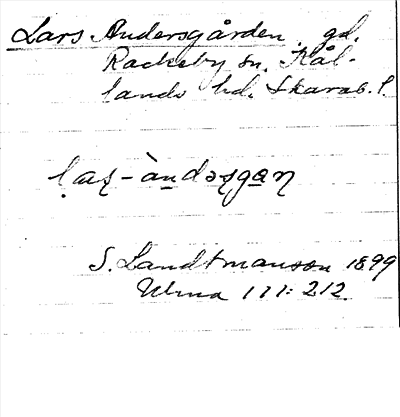 Lars Andersgården gd.
Rackeby sn. Kål-
lands hd. Skarab. l.
laʂ-àndəʂgaɳ
S. Landtmanson 1899
Ulma 111: 212.